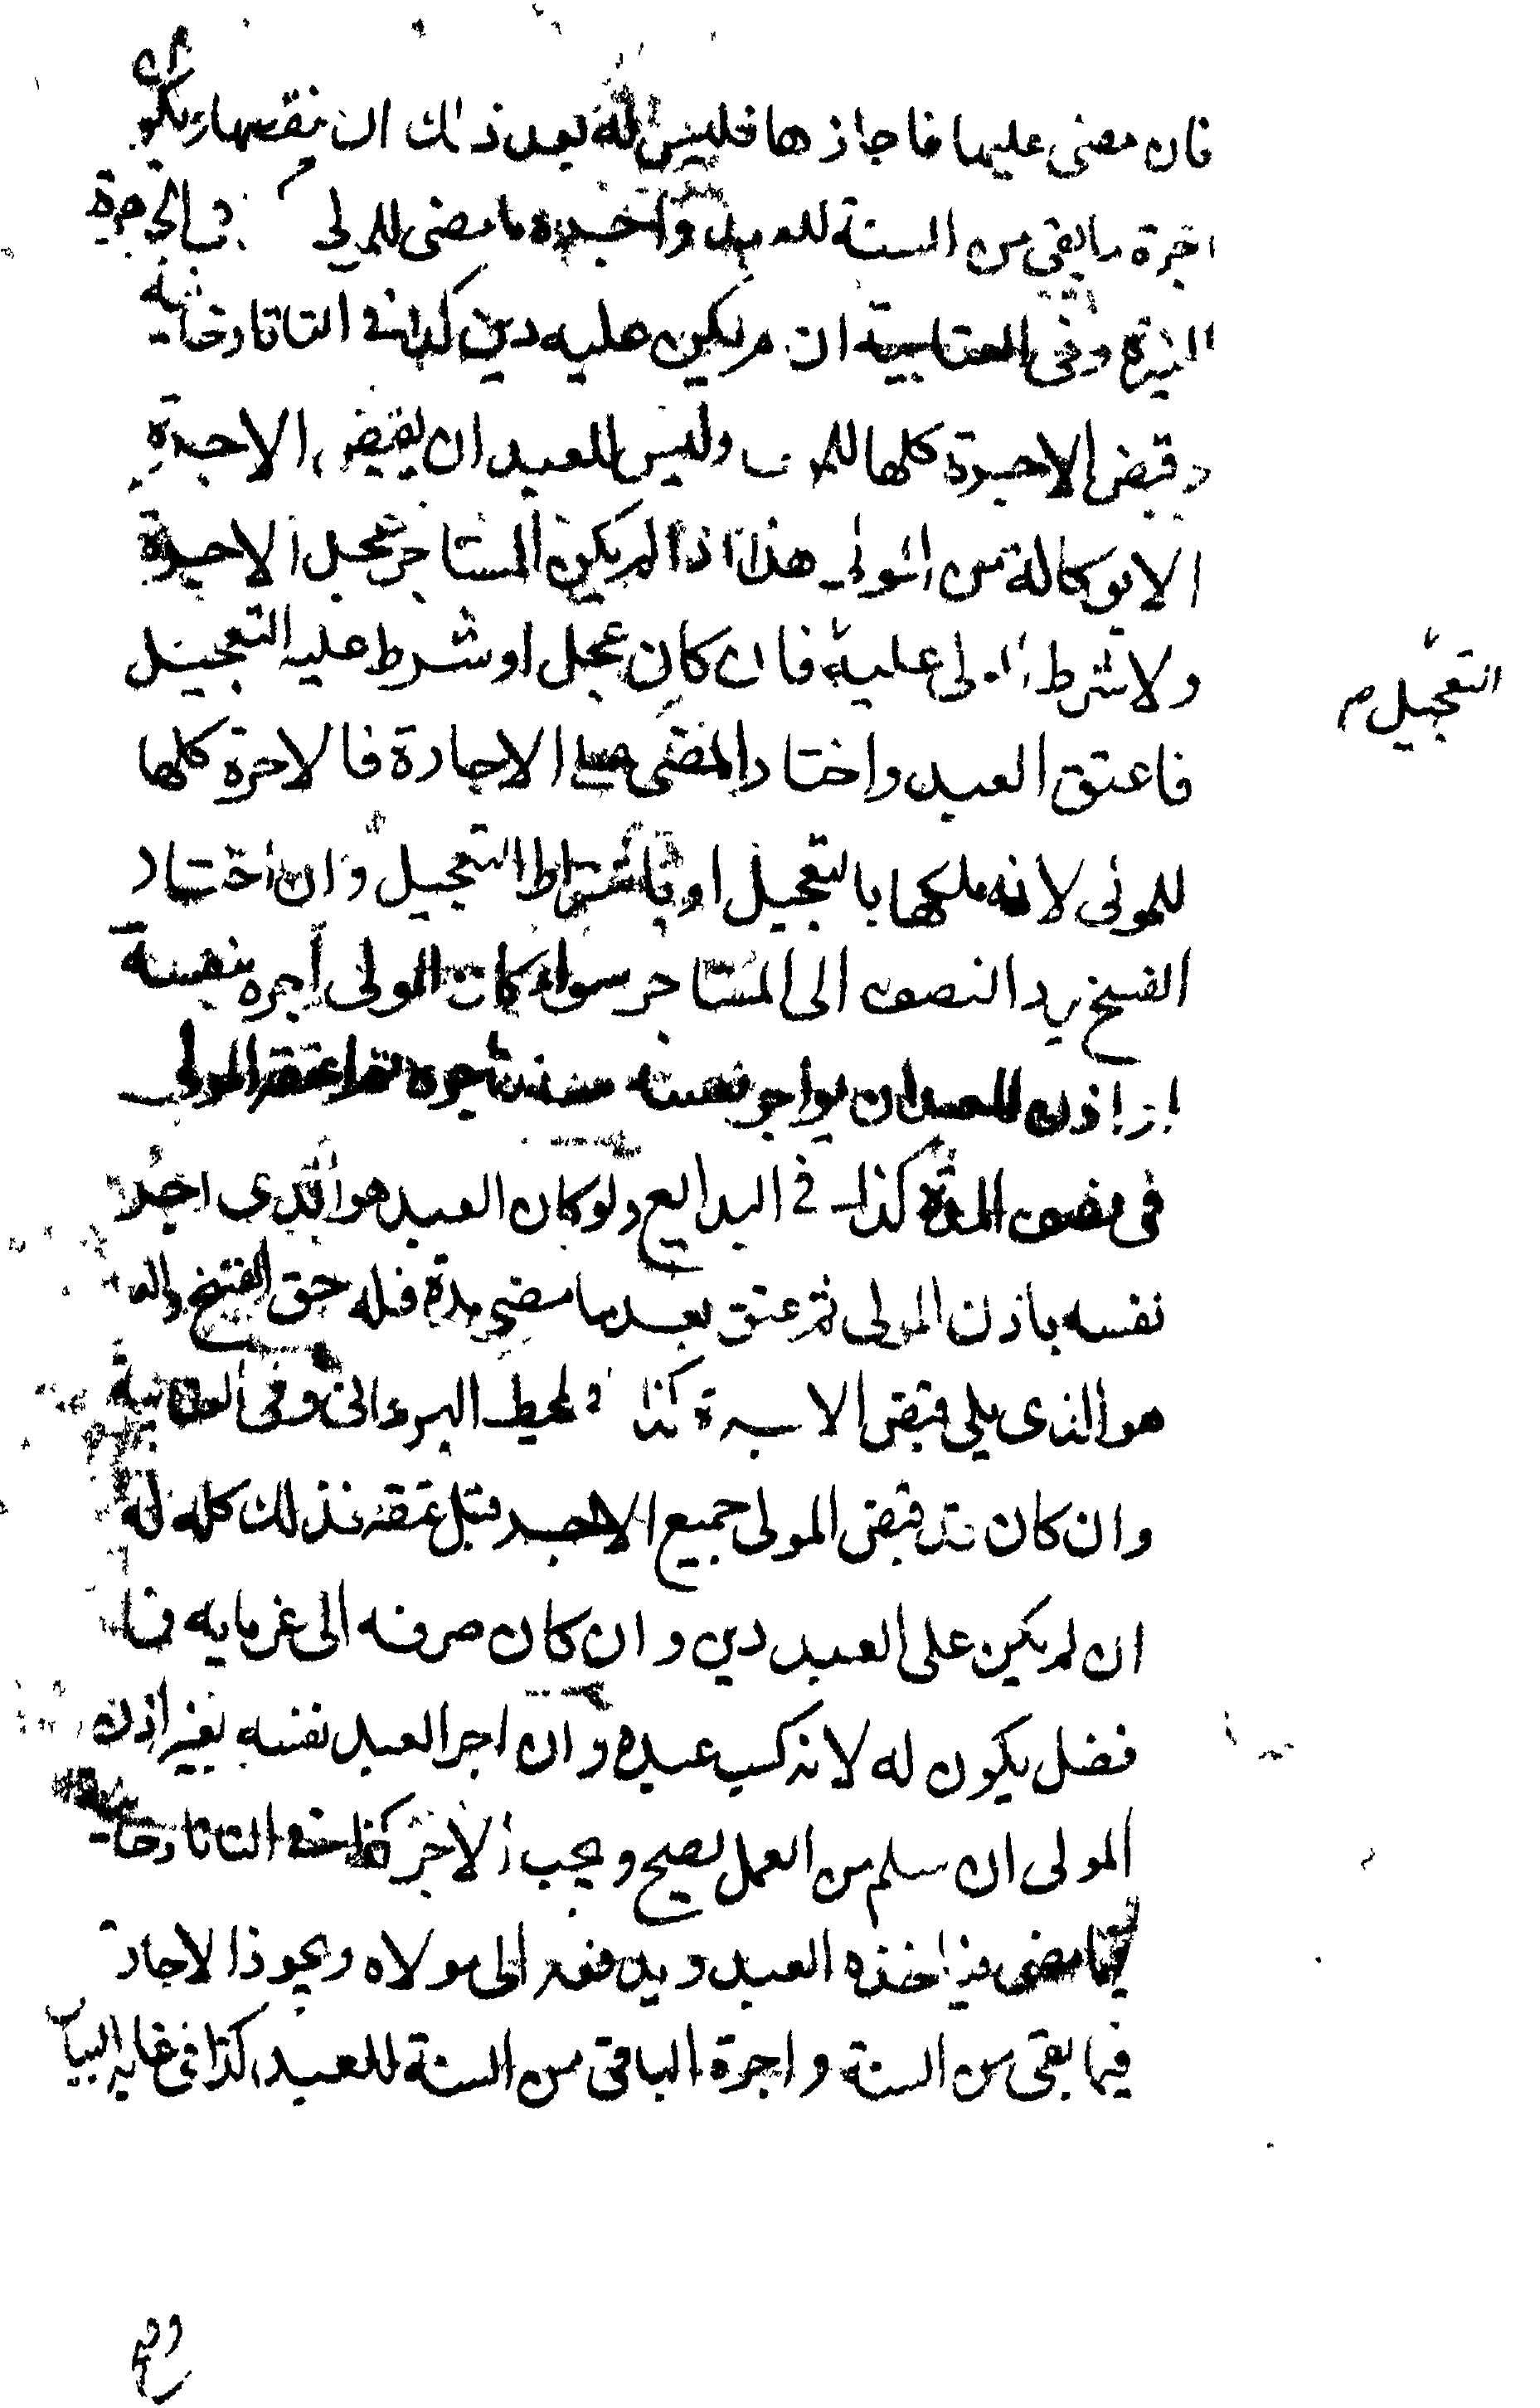 فان مضى عليها فاجازها فليس له بعد ذلك ان ينقضها ويكون
اجرة ما بقي من السنة للعبد واجرة ما مضى للمولى
وفي العتابية ان لم يكن عليه دين كذا في التاتارخانية
وقبض الاجرة كلها للمولى وليس للعبد ان يقبض الاجرة
الا بوكالة من المولى هذا اذا لم يكن المستاجر عجل الاجرة
ولا شرط المولى عليه فان كان عجل او شرط عليه التعجيل
التعجيل م
فاعتق العبد واختار المضى على الاجارة فالاجرة كلها
للمولى لانه ملكها بالتعجيل او باشتراط التعجيل وان اختار
الفسخ يرد النصف الى المستاجر سواء كان المولى اجره بنفسه
او اذن للعبد ان يواجر نفسه ثم اعتقه المولى
في نصف المدة كذا في البدايع ولو كان العبد هو الذى اجر
نفسه باذن المولى ثم عتق بعد ما مضى مدة فله حق الفسخ
هو الذى يلى قبض الاجرة كذا في المحيط البرهاني وفي
وان كان قد قبض المولى جميع الاجر قبل عتقه فذلك كله له
ان لم يكن على العبد دين وان كان صرفه الى غرمايه فما
فضل يكون له لانه كسب عبده وان اجر العبد نفسه بغير اذن
المولى ان سلم من العمل يصح ويجب الاجر كذا في التاتارخانية
فيما مضى فياخذه العبد ويدفعه الى مولاه ويجوز الاجارة
فيما بقى من السنة واجرة الباقى من السنة للعبد كذا في غاية البيان